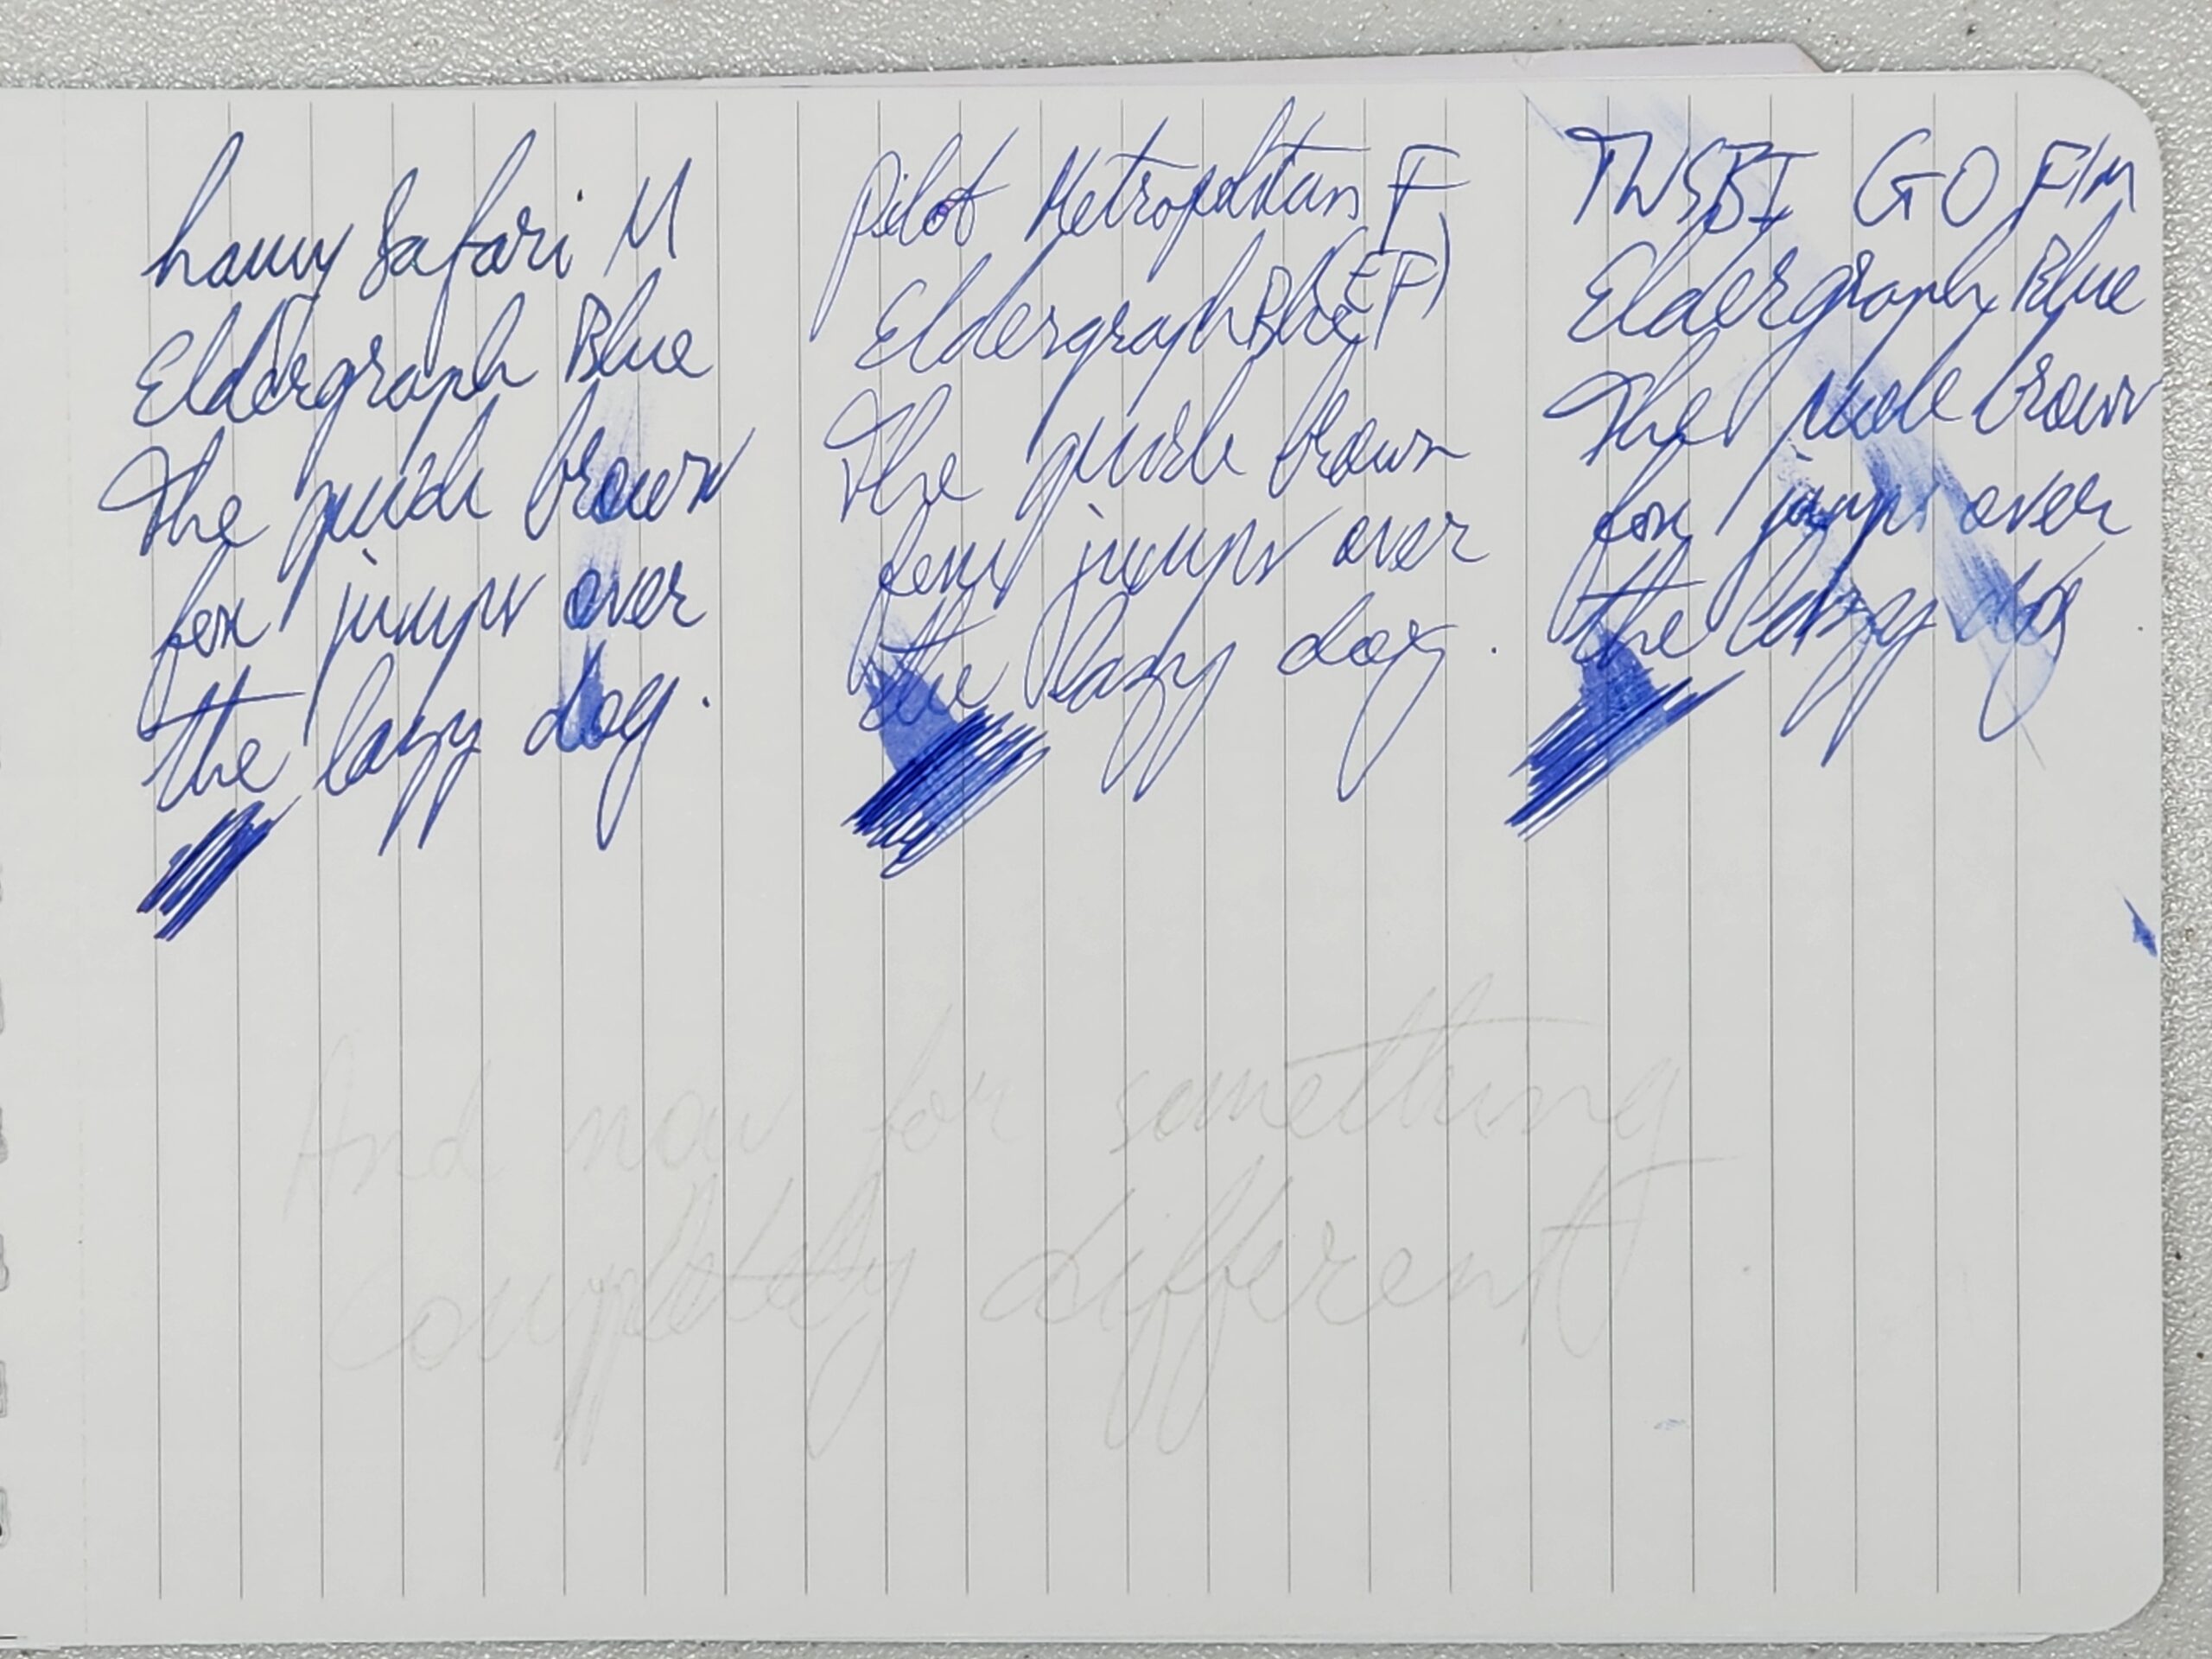 Lamy Safari M
Eldergraph Blue
The quick brown
fox jumps over
the lazy dog.
Pilot Metropolitan F
(EF)
Eldergraph Blue
The quick brown
fox jumps over
the lazy dog.
TWSBI GO F/M
Eldergraph Blue
The quick brown
fox jumps over
the lazy dog
And now for something
completely different.